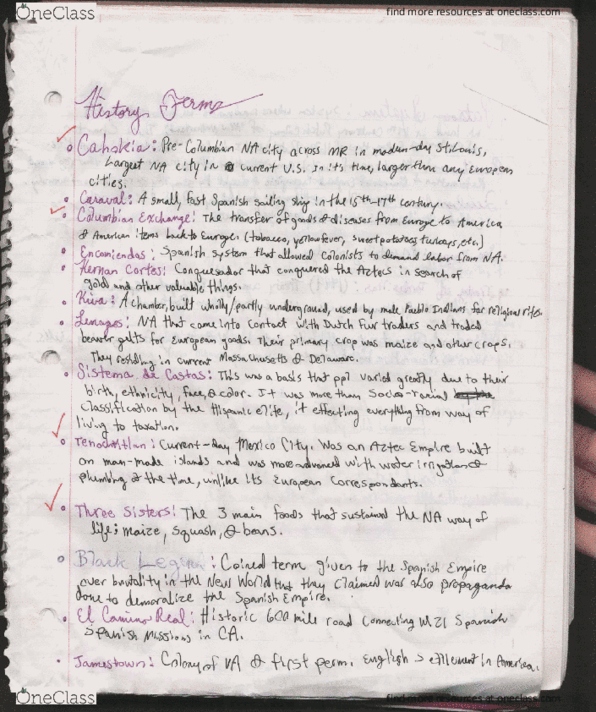 OneClass
find more resources at oneclass.com
History Terms
Cahokia: Pre-Columbian NA city across MR in modern-day St. Louis,
Largest NA city in current U.S. In its time, larger than any European
cities.
Caraval: A small, fast Spanish sailing ship in the 15th-17th century.
Columbian Exchange: The transfer of goods & diseases from Europe to America
& American items back to Europe. (tobacco, yellow fever, sweet potatoes, turkeys, etc)
Encomiendas: Spanish system that allowed colonists to demand labor from NA.
Hernan Cortes: Conquesador that conquered the Aztecs in search of
gold and other valuable things.
Kiva: A chamber, built wholly/partly underground, used by male Pueblo Indians for religious rites.
Lenapes: NA that came into contact with Dutch Fur traders and traded
beaver pelts for European goods. Their primary crop was maize and other crops.
They residing in current Massachusetts & Delaware.
Sistema de Castas: This was a basis that ppl varied greatly due to their
birth, ethnicity, race, & color. It was more than Socio-racial
Classification by the Hispanic elite, it effecting everything from way of
living to taxation.
Tenochtitlan: Current-day Mexico City. Was an Aztec Empire built
on man-made islands and was more advanced with water irrigation &
plumbing at the time, unlike its European Correspondants.
Three Sisters: The 3 main foods that sustained the NA way of
life; maize, squash, & beans.
Black Legend: Coined term given to the Spanish Empire
over brutality in the New World that they claimed was also propaganda
done to demoralize the Spanish Empire.
El Camino Real: Historic 600 mile road connecting 21 Spanish
Spanish Missions in CA.
Jamestown: Colony of VA & first perm. English settlement in America.
OneClass
find more resources at oneclass.com